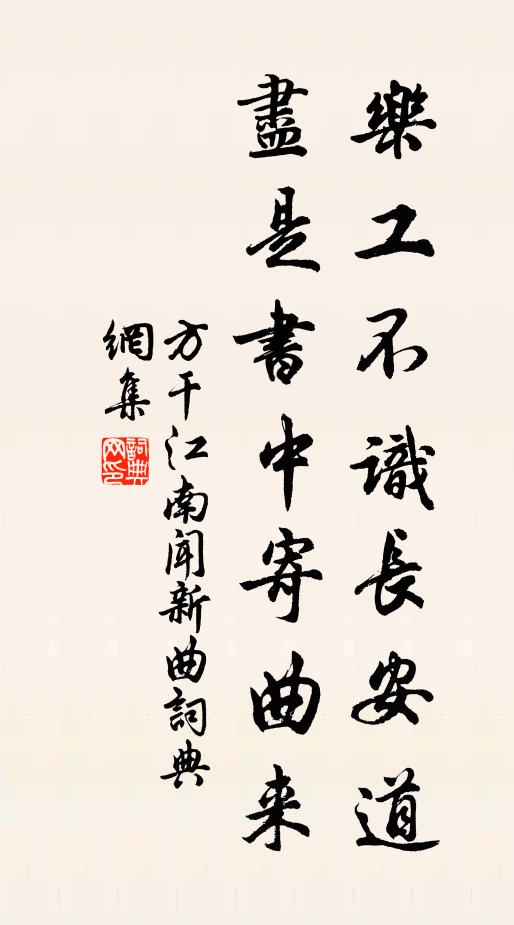 樂工不識長安道
盡是書中寄曲来
方干江南闻新曲詞典
網集
詞典网印